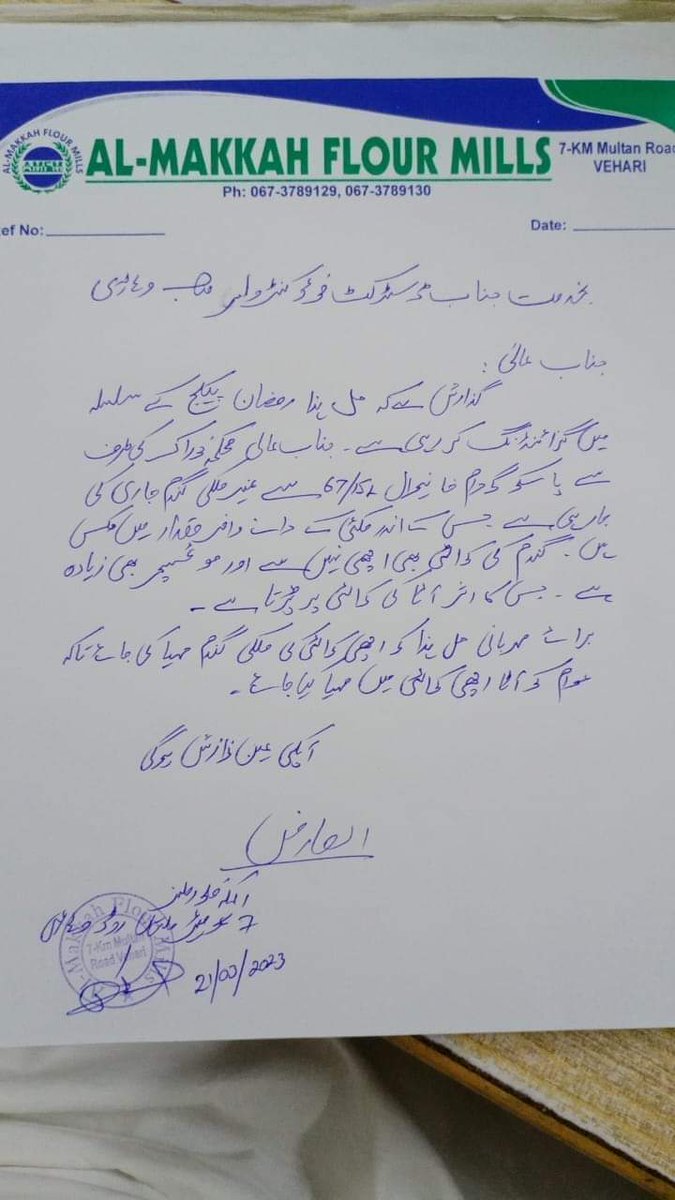 AL-MAKKAH FLOUR MILLS
AL-MAKKAH FLOUR MILLS
7-KM Multan Road
VEHARI
Ph: 067-3789129, 067-3789130
ef No:
Date:
بخدمت جناب ڈسٹرکٹ فوڈ کنٹرولر صاحب وہاڑی
جناب عالی :
گذارش ہے کہ مل ہذا رمضان پیکیج کے سلسلہ
میں گرائنڈنگ کر رہی ہے ۔ جناب عالی محکمہ خوراک کی طرف
سے پاسکو گودام خانیوال 67/15L سے غیر ملکی گندم جاری کی
جا رہی ہے جس کے اندر مکئی کے دانے وافر مقدار میں مکس
ہیں ۔ گندم کی کوالٹی بھی اچھی نہیں ہے اور موئسچر بھی زیادہ
ہے ۔ جس کا اثر آٹا کی کوالٹی پر پڑتا ہے ۔
برائے مہربانی مل ہذا کو اچھی کوالٹی کی ملکی گندم مہیا کی جائے تاکہ
عوام کو آٹا اچھی کوالٹی میں مہیا کیا جائے ۔
آپکی عین نوازش ہوگی
العارض
المکہ فلور ملز
7 کلومیٹر ملتان روڈ وہاڑی
Al-Makkah Flour Mills
7-Km Multan
Road Vehari
21/03/2023